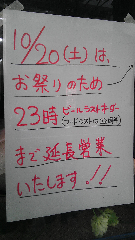 10/20(土)は、
お祭りのため
23時 ビールラストオーダー
(フードラストは22時半)
まで延長営業
いたします!!